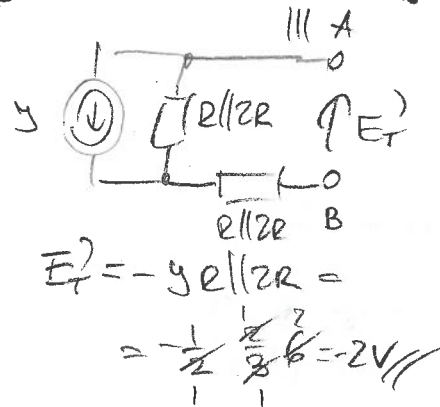 ||| A
y R||2R E_T^)
R||2R B
E_T^) = - y R||2R =
= - 1/2 2/3 6 = -2V //